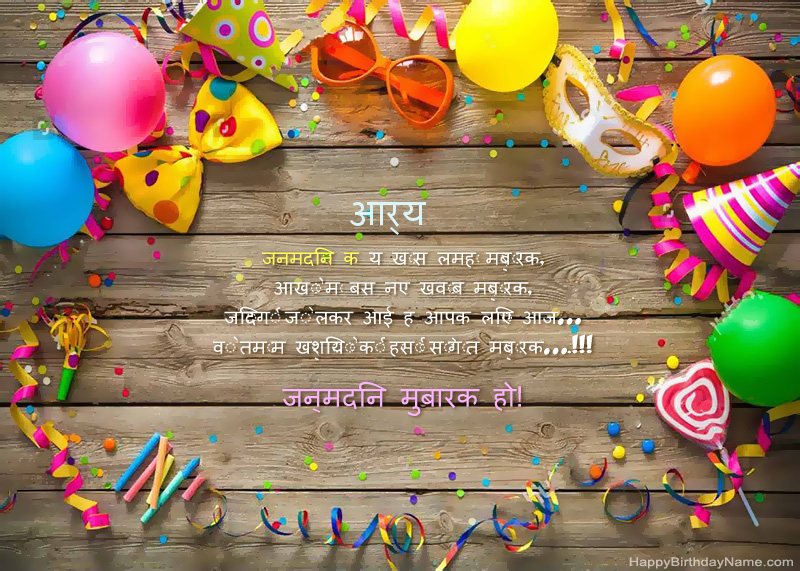 आर्य
जन्मदिन के ये खास लम्हें मुबारक,
आँखों में बसे नए ख्वाब मुबारक,
जिंदगी जो लेकर आई है आपके लिए आज...
वो तमाम खुशियों की हसीं सौगात मुबारक...!!!
जन्मदिन मुबारक हो!
HappyBirthdayName.com